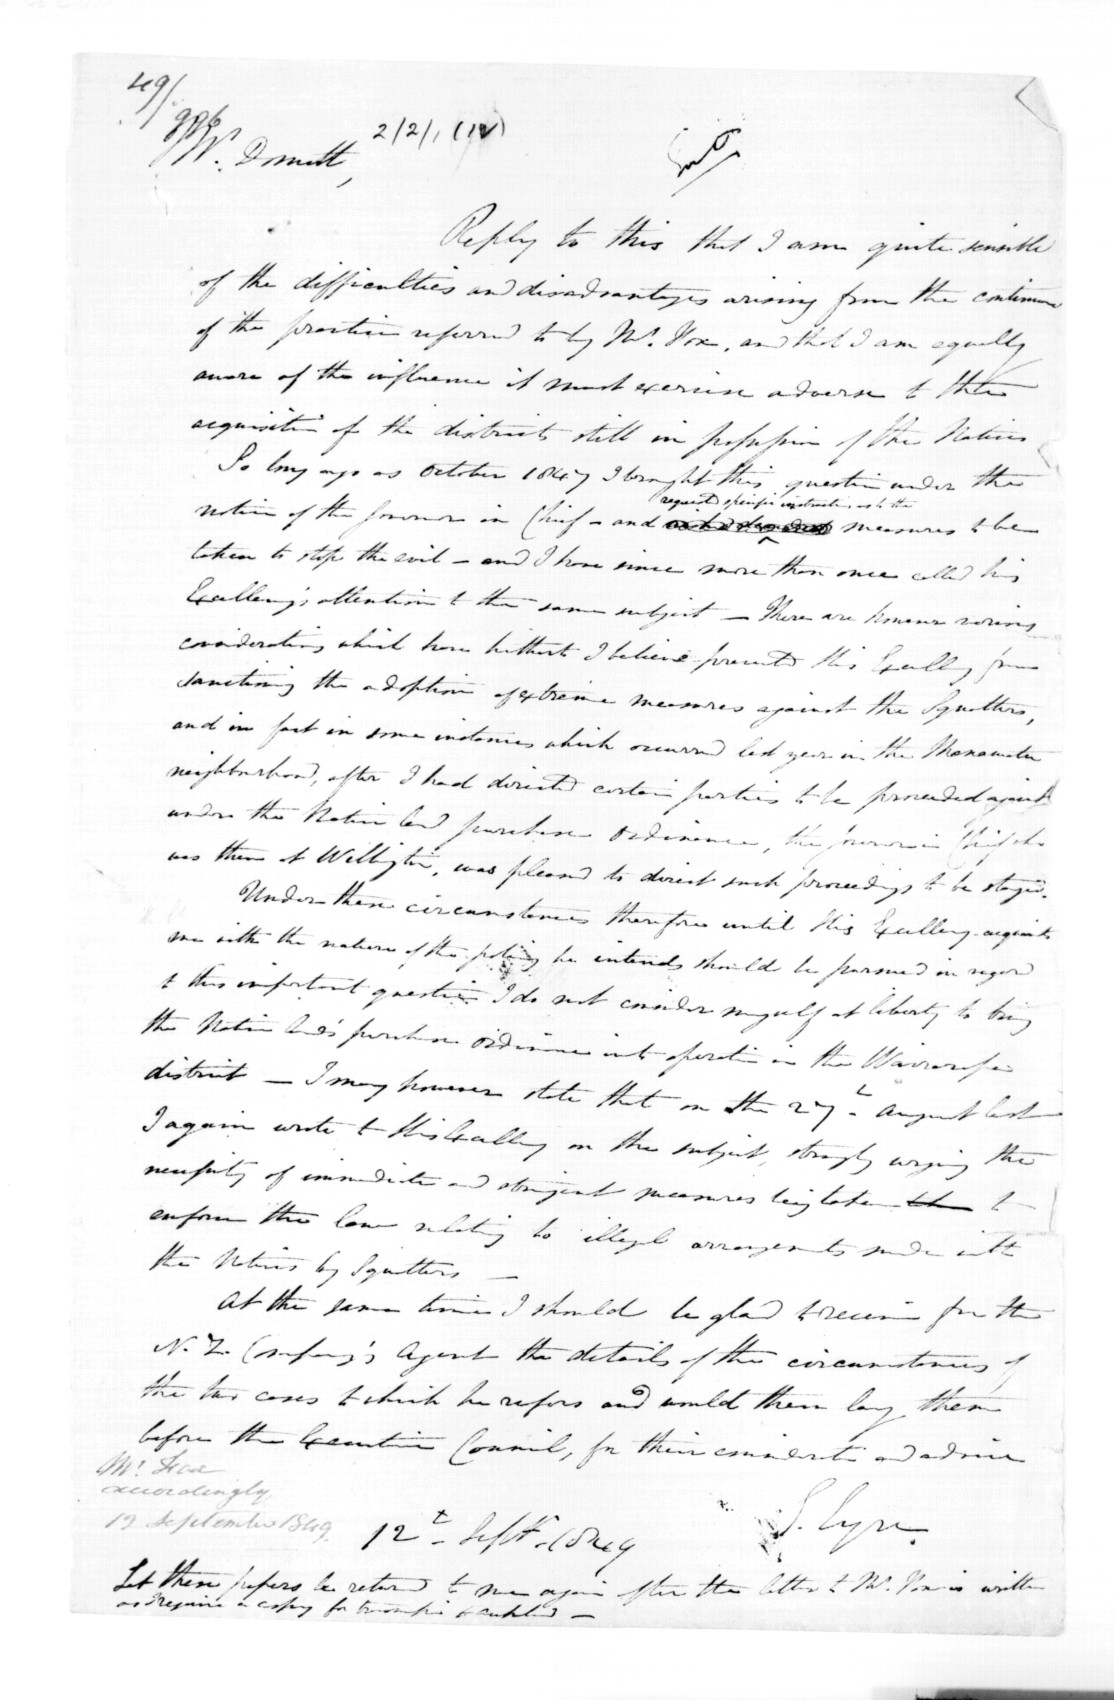 49/
2/2/1 (12)
Mr. Domett,
Reply to this that I am quite sensible
of the difficulties and disadvantages arising from the continuance
of the practice referred to by Mr. Fox, and that I am equally
aware of the influence it must exercise adverse to the
acquisition of the districts still in possession of the Natives
So long ago as October 1847 I brought this question under the
requested specific instructions as to the
notice of the Governor in Chief - and measures to be
taken to stop the evil - and I have since more than once called his
Excellency's attention to the same subject - There are however various
considerations which have hitherto I believe prevented His Excellency from
sanctioning the adoption of extreme measures against the Squatters,
and in fact in some instances which occurred last year in the Manawatu
neighbourhood, after I had directed certain parties to be proceeded against
under the Native land purchase Ordinance, the Governor in Chief who
was then at Wellington, was pleased to direct such proceedings to be stayed.
Under these circumstances therefore until His Excellency acquaints
me with the nature of the policy he intends should be pursued in regard
to this important question I do not consider myself at liberty to bring
the Native Land purchase Ordinance into operation in the Wairarapa
district - I may however state that on the 27th August last
I again wrote to His Excellency on the subject, strongly urging the
necessity of immediate and stringent measures being taken to
enforce the law relating to illegal arrangements made with
the Natives by Squatters -
At the same time I should be glad to receive from the
N. Z. Company's Agent the details of the circumstances of
the two cases to which he refers and would then lay them
before the Executive Council, for their consideration and advice
Mr. Fox
accordingly
13 September 1849.
E. Eyre.
12th Septr. 1849
Let these papers be returned to me again after the letter to Mr. Fox is written
as I require a copy for to